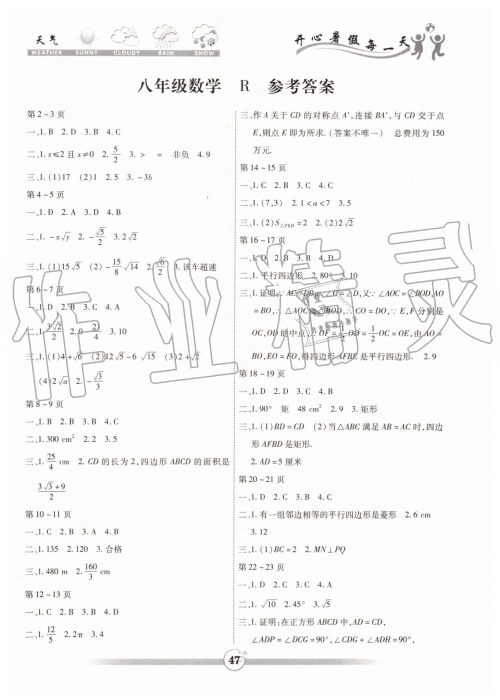 天气
WEATHER SUNNY CLOUDY RAIN SNOW
开心暑假每一天
八年级数学 R 参考答案
第2~3页
一、1. B 2. D 3. B 4. C
二、1. x≤2且x≠0 2. 5/2 3. > = 非负 4. 9
三、1. (1)17 (2)1 2. 5 3. -3b
第4~5页
一、1. D 2. A 3. D
二、1. -x√y 2. -√5/2 3. 2√2
三、1. (1)15√5 (2)-15/8√14 2. √6/2 3. 该车超速
第6~7页
一、1. B 2. C 3. D
二、1. 3√2/2 2. 0 3. 10
三、1. (1)4+√6 (2)12√5-6√15 (3)2+√2
(4)2√a 2. -√3/3
第8~9页
一、1. B 2. D 3. B 4. C
二、1. 300 cm² 2. 2 3. 5
三、1. 25/4 cm 2. CD的长为2,四边形ABCD的面积是
(3√3+9)/2
第10~11页
一、1. C 2. B 3. A 4. B
二、1. 135 2. 120 3. 合格
三、1. 480 m 2. 160/3 cm
第12~13页
一、1. D 2. B 3. A 4. B
二、1. 12/5 2. 2π 3. 4
三、作A关于CD的对称点A′,连接BA′,与CD交于点
E,则点E即为所求.(答案不唯一) 总费用为150
万元.
第14~15页
一、1. C 2. B 3. C
二、1. (7,3) 2. 1<a<7 3. 5
三、1. (2)S△FED=2 2. (2)2√2
第16~17页
一、1. D 2. B 3. B 4. D
二、1. 平行四边形 2. 80° 3. 10
三、1. 证明:∵AC∥DB,∴∠C=∠D,又∵∠AOC=∠BOD,AO
=BO,∴△AOC≌△BOD,∴CO=DO,∵E,F分别是
OC,OD的中点,∴OF=1/2OD=1/2OC=OE,由AO=
BO,EO=FO,得四边形AFBE是平行四边形. 2. 9
第18~19页
一、1. D 2. C 3. B
二、1. 90° 矩 48 cm² 2. 9 3. 矩形
三、1. (1)BD=CD (2)当△ABC满足AB=AC时,四边
形AFBD是矩形.
2. AD=5厘米
第20~21页
一、1. D 2. C 3. D
二、1. 有一组邻边相等的平行四边形是菱形 2. 6 cm
3. 12
三、1. (1)BC=2 2. MN⊥PQ
第22~23页
一、1. D 2. D 3. C 4. A
二、1. √10 2. 45° 3. √5
三、1. 证明:在正方形ABCD中,AD=CD,
∠ADP=∠DCG=90°,∠CDG+∠ADH=90°,
47
作业精灵